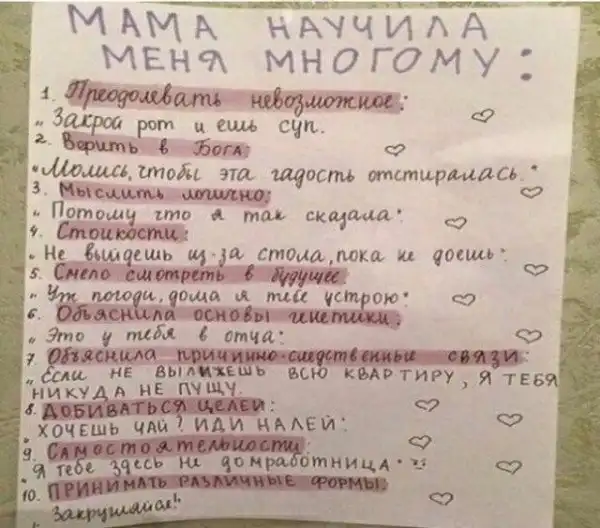 МАМА НАУЧИЛА
МЕНЯ МНОГОМУ:
1. Преодолевать невозможное:
„Закрой рот и ешь суп.
2. Верить в Бога:
„Молись, чтобы эта гадость отстиралась."
3. Мыслить логично:
„Потому что я так сказала"
4. Стойкости:
„Не выйдешь из-за стола, пока не доешь"
5. Смело смотреть в будущее:
„Уж погоди, дома я тебе устрою"
6. Объяснила основы генетики:
„Это у тебя в отца"
7. Объяснила причинно-следственные связи:
„Если НЕ ВЫЛИЖЕШЬ ВСЮ КВАРТИРУ, Я ТЕБЯ
НИКУДА НЕ ПУЩУ.
8. ДОБИВАТЬСЯ ЦЕЛЕЙ:
„ХОЧЕШЬ ЧАЙ? ИДИ НАЛЕЙ"
9. Самостоятельности:
„Я тебе здесь не домработница"
10. ПРИНИМАТЬ РАЗЛИЧНЫЕ ФОРМЫ:
„Закругляйся!"